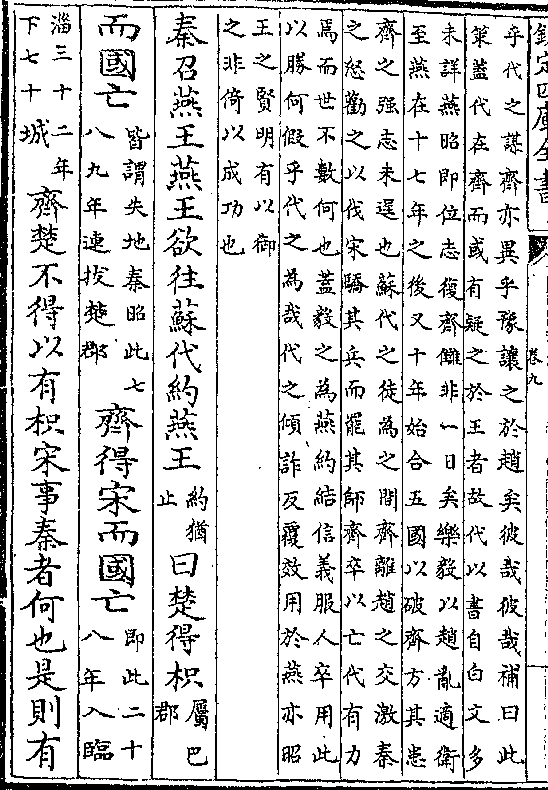 欽定四庫全書
卷九
乎代之謀齊亦異乎豫讓之於趙矣彼哉彼哉補曰此
策蓋代在齊而或有疑之於王者故代以書自白文多
未詳燕昭即位志復齊讎非一日矣樂毅以趙亂適衛
至燕在十七年之後又十年始合五國以破齊方其患
齊之强志未逞也蘇代之徒為之間齊離趙之交激秦
之怒勸之以伐宋驕其兵而罷其師齊卒以亡代有力
焉而世不數何也蓋毅之為燕約結信義服人卒用此
以勝何假乎代之為哉代之傾詐反覆效用於燕亦昭
王之賢明有以御
之非倚以成功也
秦召燕王燕王欲往蘇代約燕王約猶止曰楚得枳屬巴郡
而國亡皆謂失地秦昭此七八九年連拔楚郡齊得宋而國亡即此二十八年入臨
淄三十二年下七十城齊楚不得以有枳宋事秦者何也是則有